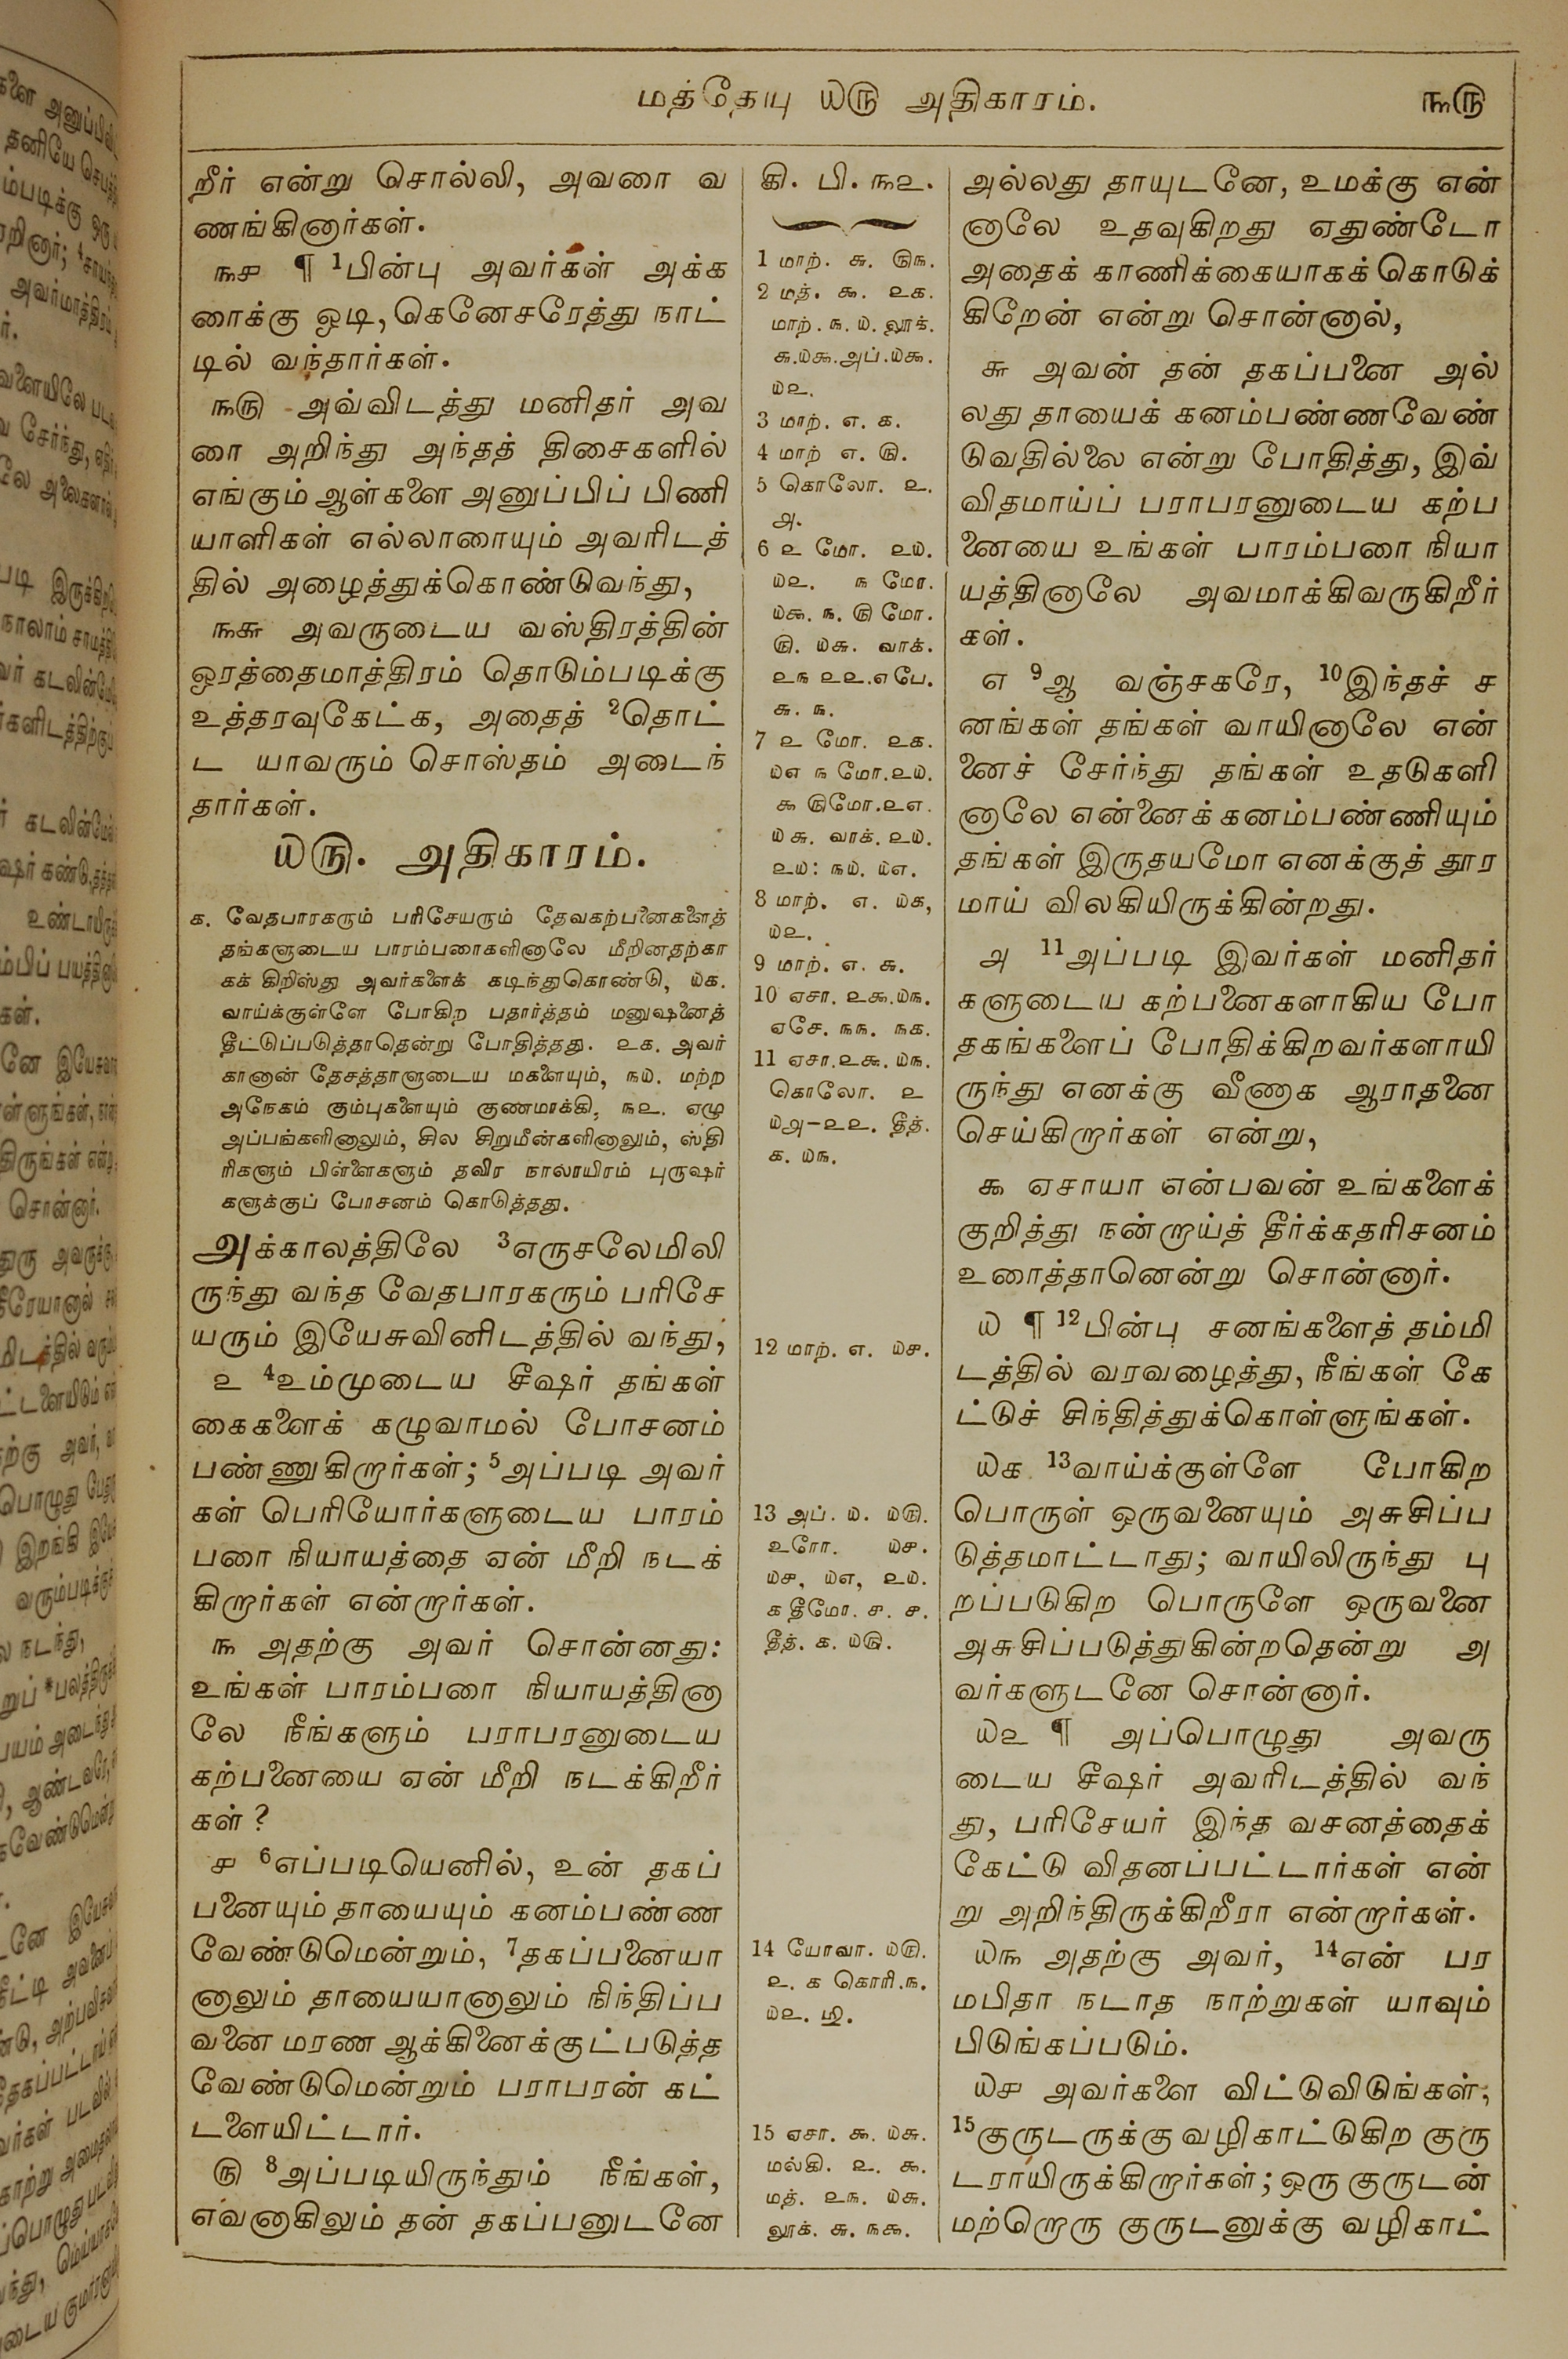 மத்தேயு ௰௫ அதிகாரம்.
௩௫
றீர் என்று சொல்லி, அவரை வ
ணங்கினார்கள்.
௩௪ ¶ 1பின்பு அவர்கள் அக்க
ரைக்கு ஓடி, கெனேசரேத்து நாட்
டில் வந்தார்கள்.
௩௫ அவ்விடத்து மனிதர் அவ
ரை அறிந்து அந்தத் திசைகளில்
எங்கும் ஆள்களை அனுப்பிப் பிணி
யாளிகள் எல்லாரையும் அவரிடத்
தில் அழைத்துக்கொண்டுவந்து,
௩௬ அவருடைய வஸ்திரத்தின்
ஓரத்தைமாத்திரம் தொடும்படிக்கு
உத்தரவுகேட்க, அதைத் 2தொட்
ட யாவரும் சொஸ்தம் அடைந்
தார்கள்.
௰௫. அதிகாரம்.
௧. வேதபாரகரும் பரிசேயரும் தேவகற்பனைகளைத்
தங்களுடைய பாரம்பரைகளினாலே மீறினதற்கா
கக் கிறிஸ்து அவர்களைக் கடிந்துகொண்டு, ௰௧.
வாய்க்குள்ளே போகிற பதார்த்தம் மனுஷனைத்
தீட்டுப்படுத்தாதென்று போதித்தது. ௨௧. அவர்
கானான் தேசத்தாளுடைய மகளையும், ௩௰. மற்ற
அநேகம் கும்புகளையும் குணமாக்கி, ௩௨. ஏழு
அப்பங்களினாலும், சில சிறுமீன்களினாலும், ஸ்தி
ரிகளும் பிள்ளைகளும் தவிர நாலாயிரம் புருஷர்
களுக்குப் போசனம் கொடுத்தது.
அக்காலத்திலே 3எருசலேமிலி
ருந்து வந்த வேதபாரகரும் பரிசே
யரும் இயேசுவினிடத்தில் வந்து,
௨ 4உம்முடைய சீஷர் தங்கள்
கைகளைக் கழுவாமல் போசனம்
பண்ணுகிறார்கள்; 5அப்படி அவர்
கள் பெரியோர்களுடைய பாரம்
பரை நியாயத்தை ஏன் மீறி நடக்
கிறார்கள் என்றார்கள்.
௩ அதற்கு அவர் சொன்னது:
உங்கள் பாரம்பரை நியாயத்தினா
லே நீங்களும் பராபரனுடைய
கற்பனையை ஏன் மீறி நடக்கிறீர்
கள்?
௪ 6எப்படியெனில், உன் தகப்
பனையும் தாயையும் கனம்பண்ண
வேண்டுமென்றும், 7தகப்பனையா
னாலும் தாயையானாலும் நிந்திப்ப
வனை மரண ஆக்கினைக்குட்படுத்த
வேண்டுமென்றும் பராபரன் கட்
டளையிட்டார்.
௫ 8அப்படியிருந்தும் நீங்கள்,
எவனாகிலும் தன் தகப்பனுடனே
கி. பி. ௩௨.
1 மாற். ௬. ௫௩.
2 மத். ௯. ௨௧.
மாற். ௩. ௰. லூக்.
௬.௰௯.அப்.௰௯.
௰௨.
3 மாற். ௭. ௧.
4 மாற் ௭. ௫.
5 கொலோ. ௨.
௮.
6 ௨ மோ. ௨௰.
௰௨. ௩ மோ.
௰௯. ௩. ௫ மோ.
௫. ௰௬. வாக்.
௨௩ ௨௨.எபே.
௬. ௩.
7 ௨ மோ. ௨௧.
௰௭ ௩ மோ.௨௰.
௯ ௫மோ.௨௭.
௰௬. வாக். ௨௰.
௨௰: ௩௰. ௰௭.
8 மாற். ௭. ௰௧,
௰௨.
9 மாற். ௭. ௬.
10 ஏசா. ௨௯.௰௩.
ஏசே. ௩௩. ௩௧.
11 ஏசா.௨௯. ௰௩.
கொலோ. ௨
௰௮–௨௨. தீத்.
௧. ௰௩.
12 மாற். ௭. ௰௪.
13 அப். ௰. ௰௫.
உரோ. ௰௪.
௰௪, ௰௭, ௨௰.
௧ தீமோ. ௪. ௪.
தீத். ௧. ௰௫.
14 யோவா. ௰௫.
௨. ௧ கொரி.௩.
௰௨. ௴.
15 ஏசா. ௯. ௰௬.
மல்கி. ௨. ௯.
மத். ௨௩. ௰௬.
லூக். ௬. ௩௯.
அல்லது தாயுடனே, உமக்கு என்
னாலே உதவுகிறது ஏதுண்டோ
அதைக் காணிக்கையாகக் கொடுக்
கிறேன் என்று சொன்னால்,
௬ அவன் தன் தகப்பனை அல்
லது தாயைக் கனம்பண்ணவேண்
டுவதில்லை என்று போதித்து, இவ்
விதமாய்ப் பராபரனுடைய கற்ப
னையை உங்கள் பாரம்பரை நியா
யத்தினாலே அவமாக்கிவருகிறீர்
கள்.
௭ 9ஆ வஞ்சகரே, 10இந்தச் ச
னங்கள் தங்கள் வாயினாலே என்
னைச் சேர்ந்து தங்கள் உதடுகளி
னாலே என்னைக் கனம்பண்ணியும்
தங்கள் இருதயமோ எனக்குத் தூர
மாய் விலகியிருக்கின்றது.
௮ 11அப்படி இவர்கள் மனிதர்
களுடைய கற்பனைகளாகிய போ
தகங்களைப் போதிக்கிறவர்களாயி
ருந்து எனக்கு வீணாக ஆராதனை
செய்கிறார்கள் என்று,
௯ ஏசாயா என்பவன் உங்களைக்
குறித்து நன்றாய்த் தீர்க்கதரிசனம்
உரைத்தானென்று சொன்னார்.
௰ ¶ 12பின்பு சனங்களைத் தம்மி
டத்தில் வரவழைத்து, நீங்கள் கே
ட்டுச் சிந்தித்துக்கொள்ளுங்கள்.
௰௧ 13வாய்க்குள்ளே போகிற
பொருள் ஒருவனையும் அசுசிப்ப
டுத்தமாட்டாது; வாயிலிருந்து பு
றப்படுகிற பொருளே ஒருவனை
அசுசிப்படுத்துகின்றதென்று அ
வர்களுடனே சொன்னார்.
௰௨ ¶ அப்பொழுது அவரு
டைய சீஷர் அவரிடத்தில் வந்
து, பரிசேயர் இந்த வசனத்தைக்
கேட்டு விதனப்பட்டார்கள் என்
று அறிந்திருக்கிறீரா என்றார்கள்.
௰௩ அதற்கு அவர், 14என் பர
மபிதா நடாத நாற்றுகள் யாவும்
பிடுங்கப்படும்.
௰௪ அவர்களை விட்டுவிடுங்கள்,
15குருடருக்கு வழிகாட்டுகிற குரு
டராயிருக்கிறார்கள்; ஒரு குருடன்
மற்றொரு குருடனுக்கு வழிகாட்